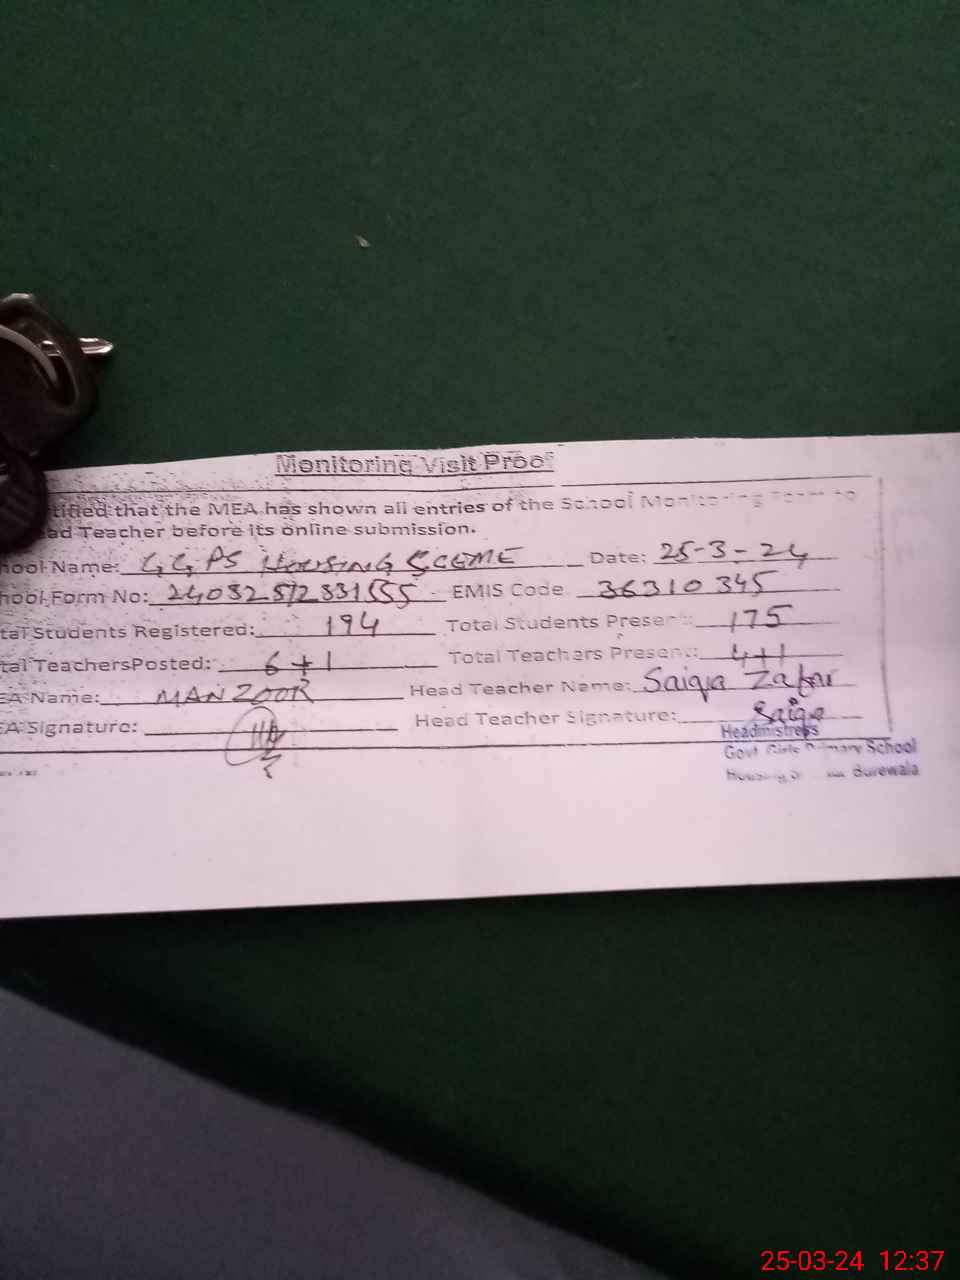 Monitoring Visit Proof
tified that the MEA has shown all entries of the School Monitoring Form to
ad Teacher before its online submission.
hool Name: GGPS HOUSING SCEME Date: 25-3-24
hool Form No: EMIS Code 36310345
tal Students Registered: 194 Total Students Present: 175
tal TeachersPosted: 6+1 Total Teachers Present: 4+1
EA Name: MANZOOR Head Teacher Name: Saiqa Zafar
EA Signature: Head Teacher Signature: Saiqa
Headmistress
Govt Girls Primary School
Housing Burewala
25-03-24 12:37